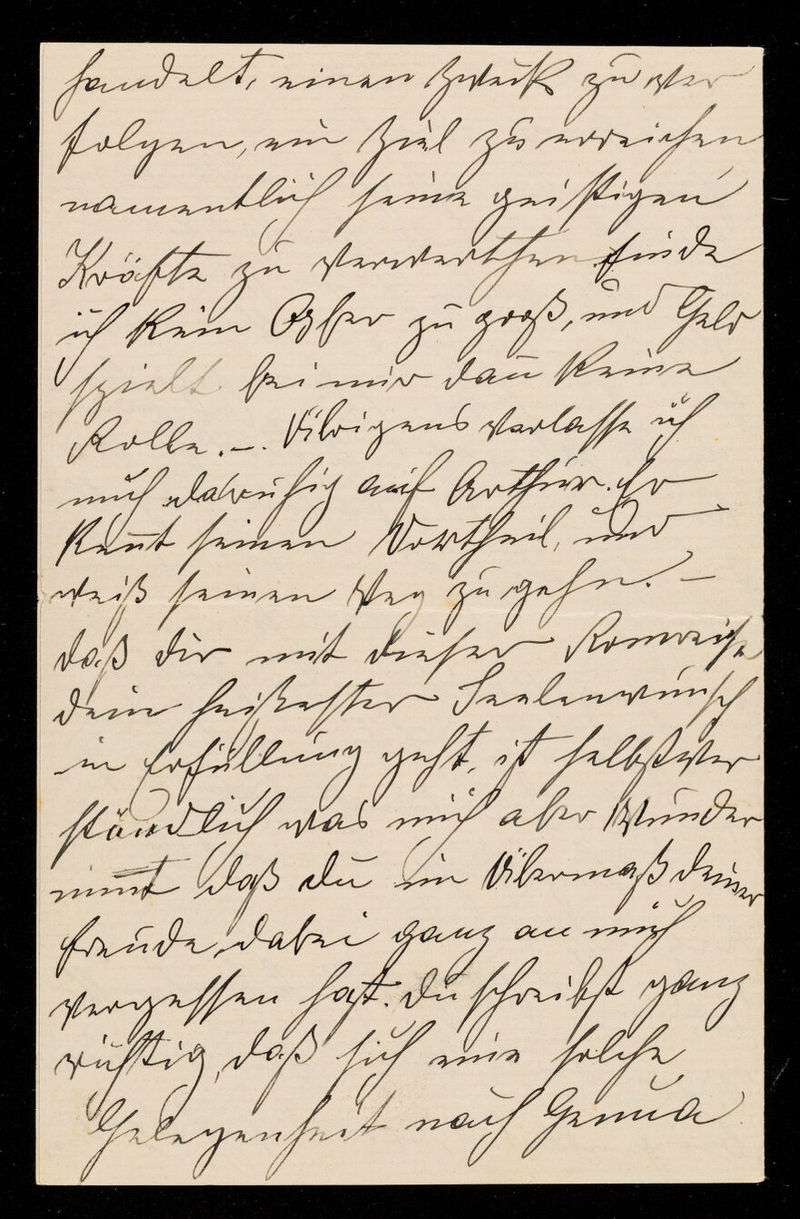 handelt, einen Zweck zu ver
folgen, ein Ziel zu erreichen
namentlich seine geistigen
Kräfte zu verwerthen finde
ich kein Opfer zu groß, und Geld
spielt bei mir dan̄ keine
Rolle. –. Übrigens verlasse ich
mich da ruhig auf Arthur. Er
ken̄t seinen Vortheil, und
weiß seinen Weg zu gehn. –
daß dir mit dieser Romreise
dein heißester Seelenwunsch
in Erfüllung geht, ist selbstver
ständlich was mich aber Wunder
nim̄t daß du im Übermaß deiner
Freude dabei ganz an mich
vergessen hast. du schreibst ganz
richtig, daß sich eine solche
Gelegenheit nach Genua